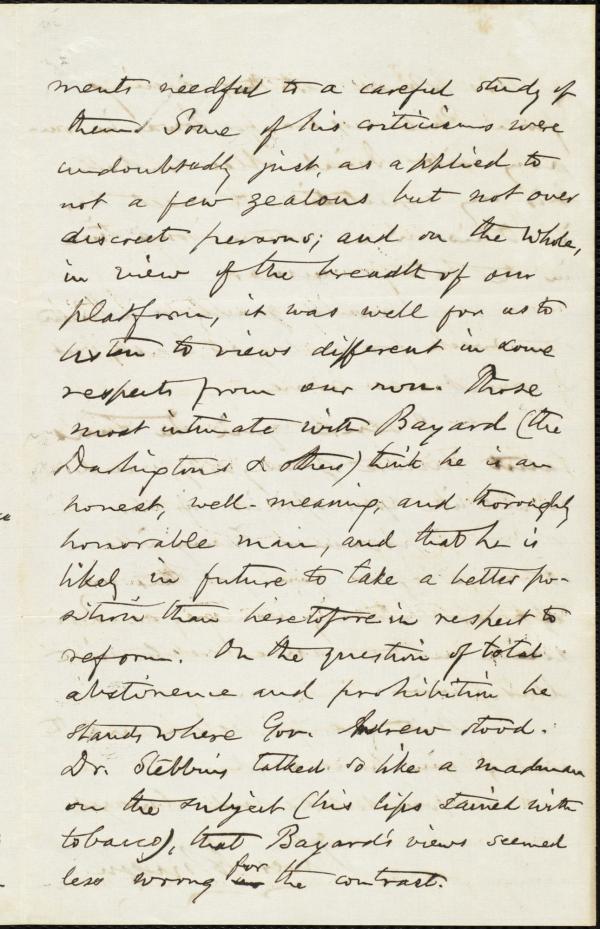 ments needful to a careful study of
them. Some of his criticisms were
undoubtedly just, as applied to
not a few zealous but not over
discreet persons; and on the whole,
in view of the breadth of our
platform, it was well for us to
listen to views different in some
respects from our own. Those
most intimate with Bayard (the
Darlingtons & others) think he is an
honest, well-meaning, and thoroughly
honorable man, and that he is
likely in future to take a better po-
sition than heretofore in respect to
reform. On the question of total
abstinence and prohibition he
stands where Gov. Andrew stood.
Dr. Stebbins talked so like a madman
on the subject (his lips stained with
tobacco), that Bayard's views seemed
less wrong for the contrast.